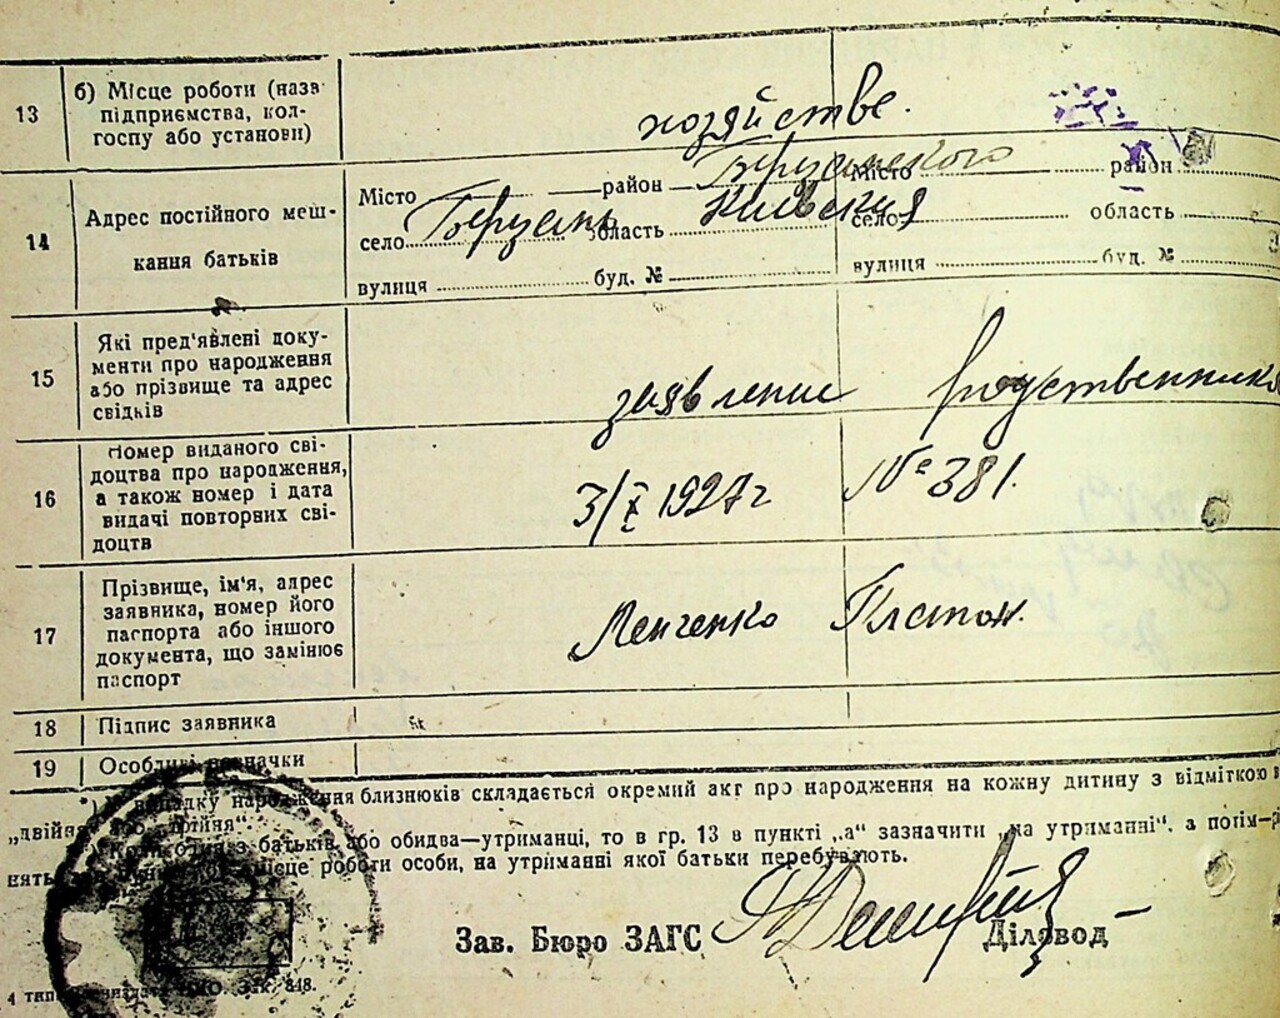 13 б) Місце роботи (назв
підприємства, кол-
госпу або установи)
хозяйстве.
14 Адрес постійного меш-
кання батьків
Місто район Березанского
село Березань область Киевская
вулиця буд. №
Місто район
село область
вулиця буд. №
15 Які пред'явлені доку-
менти про народження
або прізвище та адрес
свідків
заявление родственника
16 Номер виданого сві-
доцтва про народження,
а також номер і дата
видачі повторних сві-
доцтв
3/X 1927 г № 381.
17 Прізвище, ім'я, адрес
заявника, номер його
паспорта або іншого
документа, що замінює
паспорт
Ленченко Платон.
18 Підпис заявника
19 Особливі позначки
*) У випадку народження близнюків складається окремий акт про народження на кожну дитину з відміткою
„двійня“ або „трійня“.
Коли один з батьків або обидва—утриманці, то в гр. 13 в пункті „а“ зазначити „на утриманні“, а потім
місце роботи особи, на утриманні якої батьки перебувають.
Зав. Бюро ЗАГС Діловод